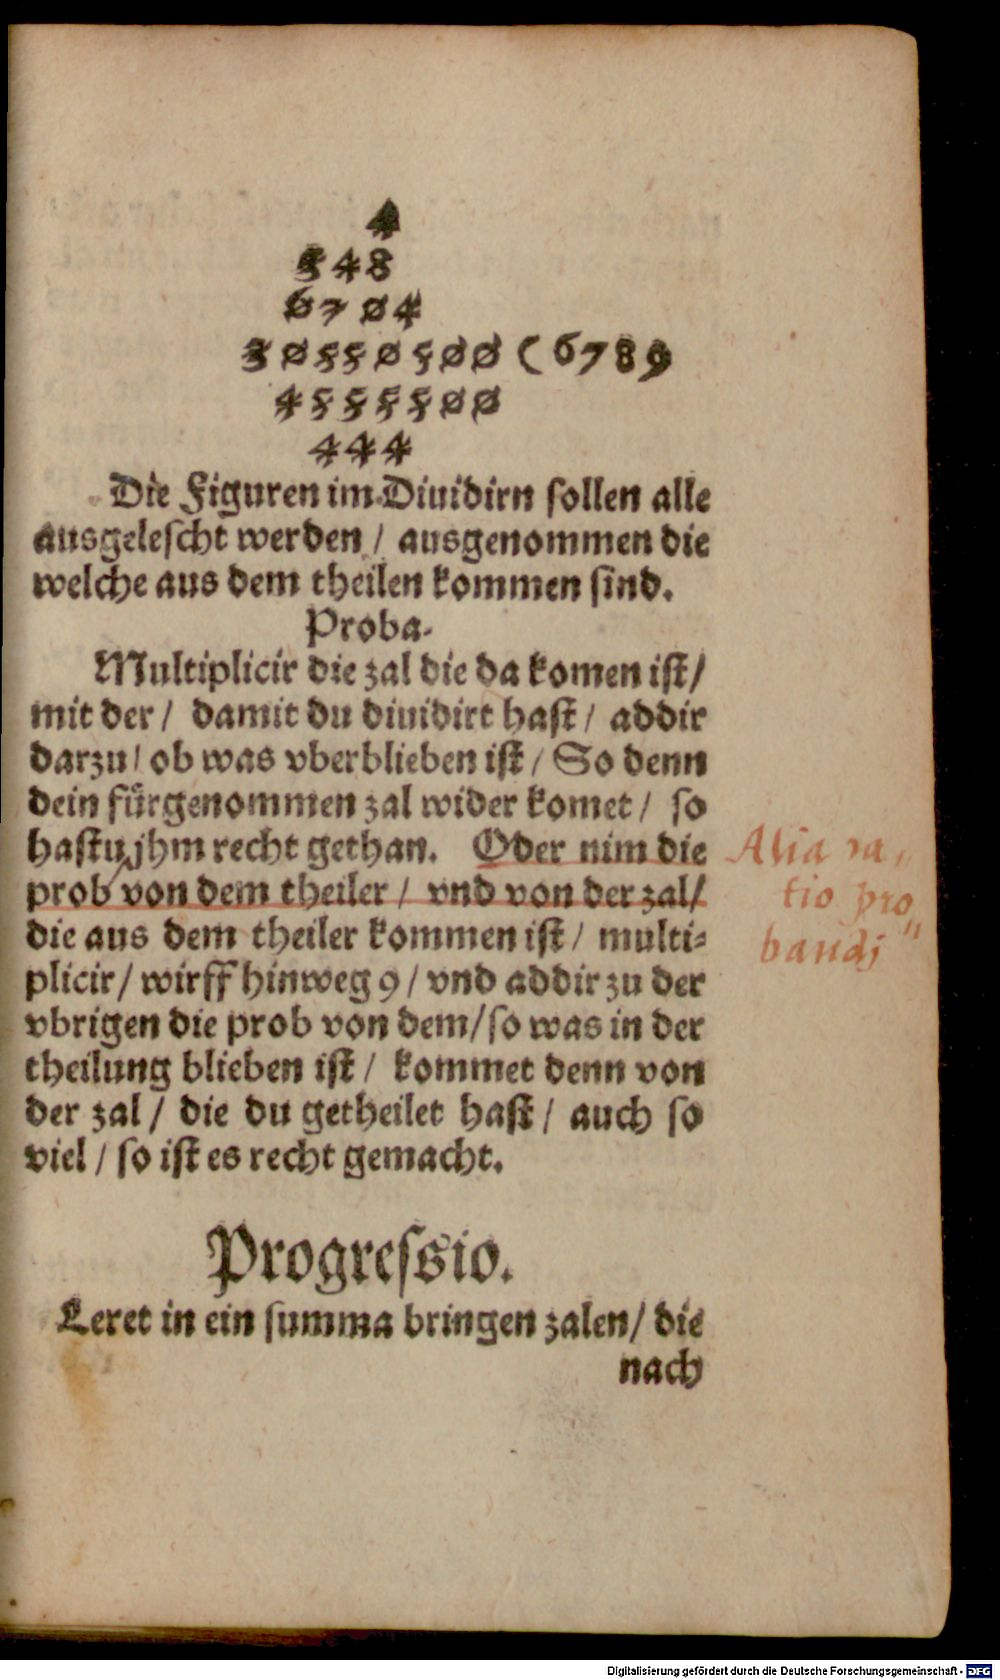 4
348
6704
30550500 ( 6789
4555500
444
Die Figuren im Diuidirn sollen alle
ausgelescht werden / ausgenommen die
welche aus dem theilen kommen sind.
Proba.
Multiplicir die zal die da komen ist /
mit der / damit du diuidirt hast / addir
darzu / ob was vberblieben ist / So denn
dein fürgenommen zal wider komet / so
hastu jhm recht gethan. Oder nim die
prob von dem theiler / vnd von der zal /
die aus dem theiler kommen ist / multi⸗
plicir / wirff hinweg 9 / vnd addir zu der
vbrigen die prob von dem / so was in der
theilung blieben ist / kommet denn von
der zal / die du getheilet hast / auch so
viel / so ist es recht gemacht.
Alia ra„
tio pro„
bandi
Progressio.
Leret in ein summa bringen zalen / die
nach
Digitalisierung gefördert durch die Deutsche Forschungsgemeinschaft - DFG